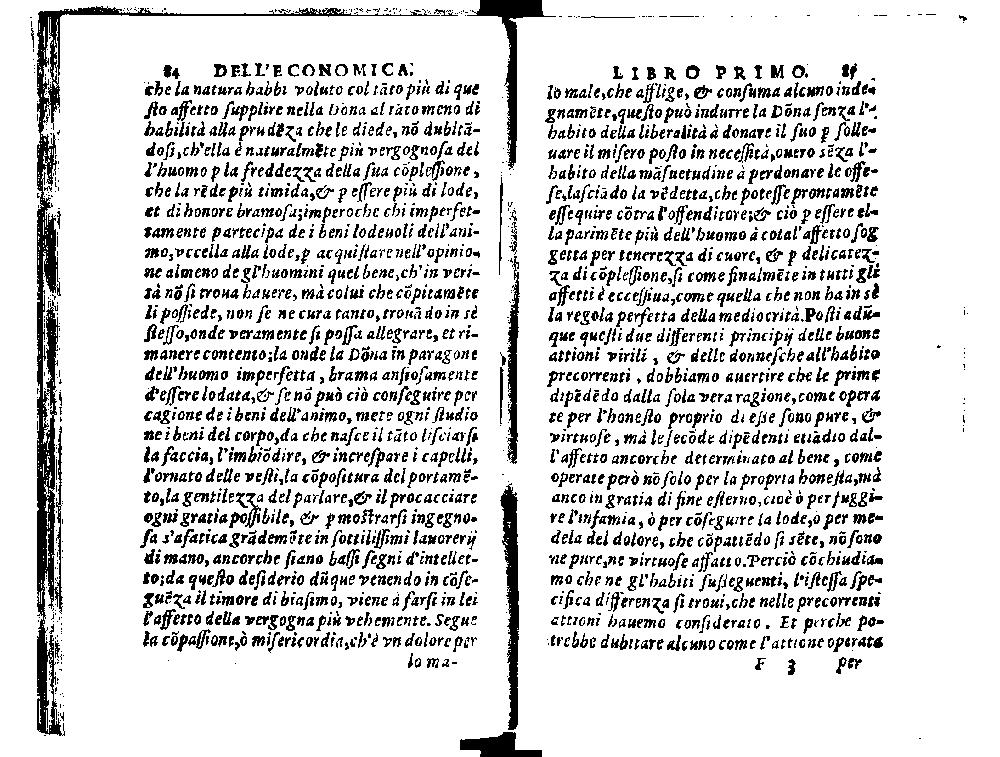 84 DELL'ECONOMICA.
che la natura habbi voluto col tãto più di que
sto affetto supplire nella Dõna al tãto meno di
habilità alla prudẽza che le diede, nõ dubitã-
dosi, ch'ella è naturalmẽte più vergognosa del
l'huomo p la freddezza della sua cõplessione,
che la rẽde più timida, & p essere più di lode,
et di honore bramosa; imperoche chi imperfet-
tamente partecipa de i beni lodeuoli dell'ani-
mo, vccella alla lode, p acquistare nell'opinio-
ne almeno de gl'huomini quel bene, ch'in veri-
tà nõ si troua hauere, mà colui che cõpitamẽte
li possiede, non se ne cura tanto, trouãdo in sè
stesso, onde veramente si possa allegrare, et ri-
manere contento; la onde la Dõna in paragone
dell'huomo imperfetta, brama ansiosamente
d'essere lodata, & se nõ può ciò conseguire per
cagione de i beni dell'animo, mete ogni studio
ne i beni del corpo, da che nasce il tãto lisciarsi
la faccia, l'imbiõdire, & increspare i capelli,
l'ornato delle vesti, la cõpositura del portamẽ-
to, la gentilezza del parlare, & il procacciare
ogni gratia possibile, & p mostrarsi ingegno-
sa s'afatica grãdemẽte in sottilissimi lauorerij
di mano, ancorche siano bassi segni d'intellet-
to; da questo desiderio dũque venendo in cõse-
guẽza il timore di biasimo, viene à farsi in lei
l'affetto della vergogna più vehemente. Segue
la cõpassione, ò misericordia, ch'è vn dolore per
lo ma-
LIBRO PRIMO. 85
lo male, che afflige, & consuma alcuno inde-
gnamẽte, questo può indurre la Dõna senza l'-
habito della liberalità à donare il suo p solle-
uare il misero posto in necessità, ouero sẽza l'-
habito della mãsuetudine à perdonare le offe-
se, lasciãdo la vẽdetta, che potesse prontamẽte
essequire cõtra l'offenditore; & ciò p essere el-
la parimẽte più dell'huomo à cotal'affetto sog
getta per tenerezza di cuore, & p delicatez-
za di cõplessione, si come finalmẽte in tutti gli
affetti è eccessiua, come quella che non ha in sè
la regola perfetta della mediocrità. Posti adũ-
que questi due differenti principij delle buone
attioni virili, & delle donnesche all'habito
precorrenti, dobbiamo auertire che le prime
dipẽdẽdo dalla sola vera ragione, come opera
te per l'honesto proprio di esse sono pure, &
virtuose, mà le secõde dipẽdenti etiãdio dal-
l'affetto ancorche determinato al bene, come
operate però nõ solo per la propria honestà, mà
anco in gratia di fine esterno, cioè ò per fuggi-
re l'infamia, ò per cõseguire la lode, ò per me-
dela del dolore, che cõpattẽdo si sẽte, nõ sono
ne pure, ne virtuose affatto. Perciò cõchiudia-
mo che ne gl'habiti susseguenti, l'istessa spe-
cifica differenza si troui, che nelle precorrenti
attioni hauemo considerato. Et perche po-
trebbe dubitare alcuno come l'attione operata
F 3 per